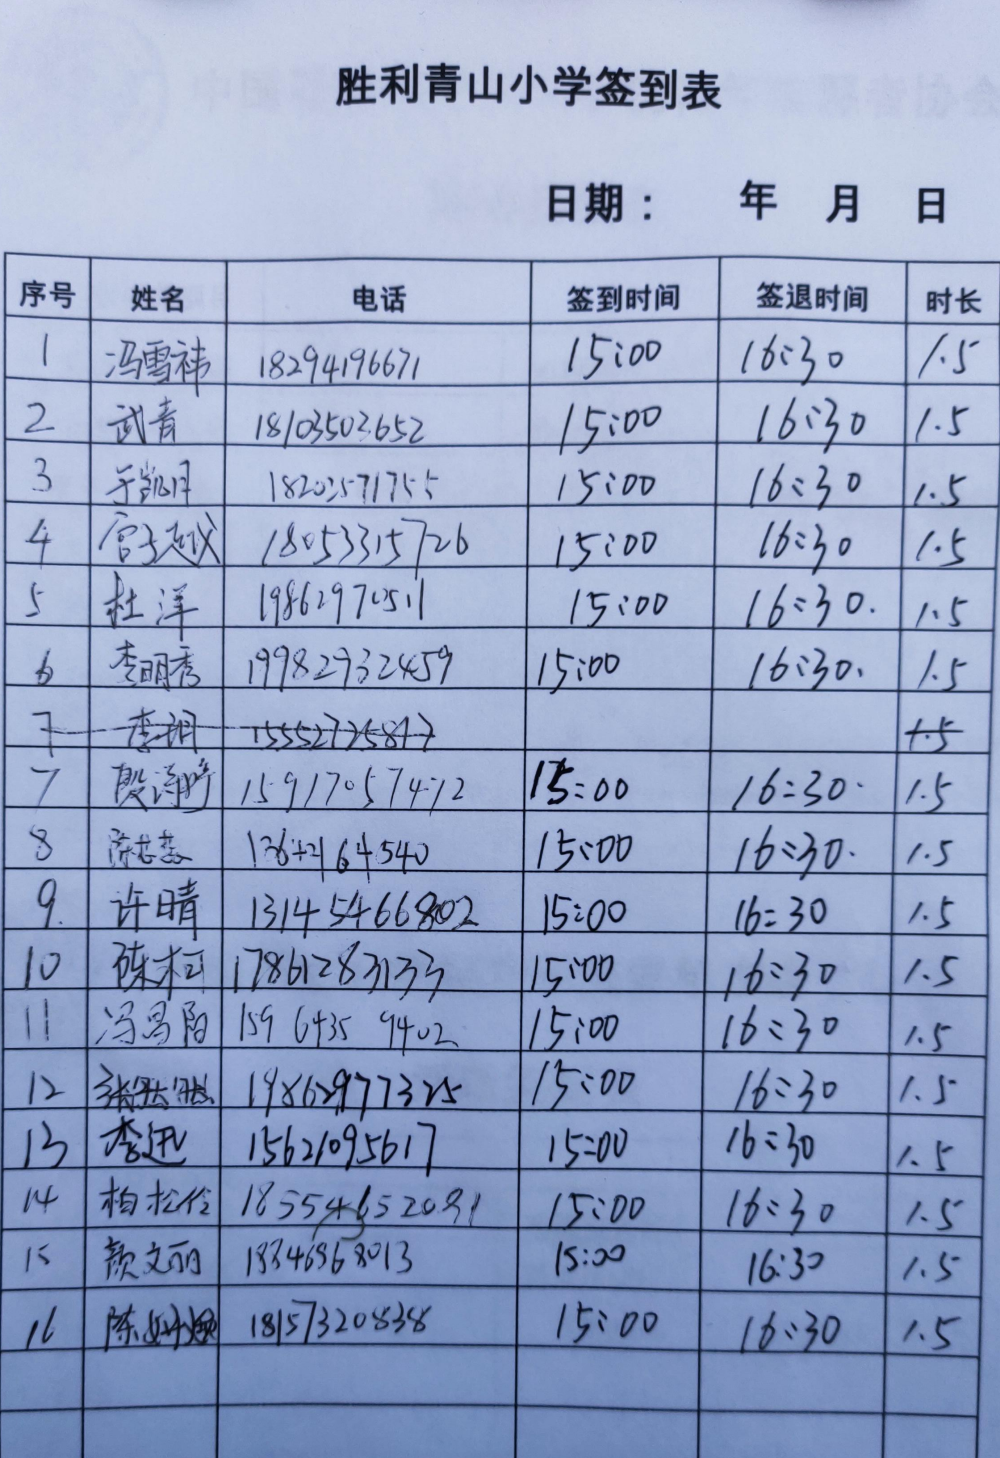 胜利青山小学签到表
日期： 年 月 日
序号 姓名 电话 签到时间 签退时间 时长
1 冯雪祎 18294196671 15:00 16:30 1.5
2 武青 18103503652 15:00 16:30 1.5
3 于凯月 18202571755 15:00 16:30 1.5
4 宫子越 18053315726 15:00 16:30 1.5
5 杜洋 19862970511 15:00 16:30. 1.5
6 李明秀 19982932459 15:00 16:30. 1.5
7 李玥 1.5
7 15917057472 15:00 16:30. 1.5
8 15:00 16:30. 1.5
9. 许晴 15:00 16:30 1.5
10 陈柯 17861283133 15:00 16:30 1.5
11 冯昌阳 159 6435 9402 15:00 16:30 1.5
12 19862977325 15:00 16:30 1.5
13 李迅 15621095617 15:00 16:30 1.5
14 柏松伶 15:00 16:30 1.5
15 颜文丽 15:00 16:30 1.5
16 18157320838 15:00 16:30 1.5